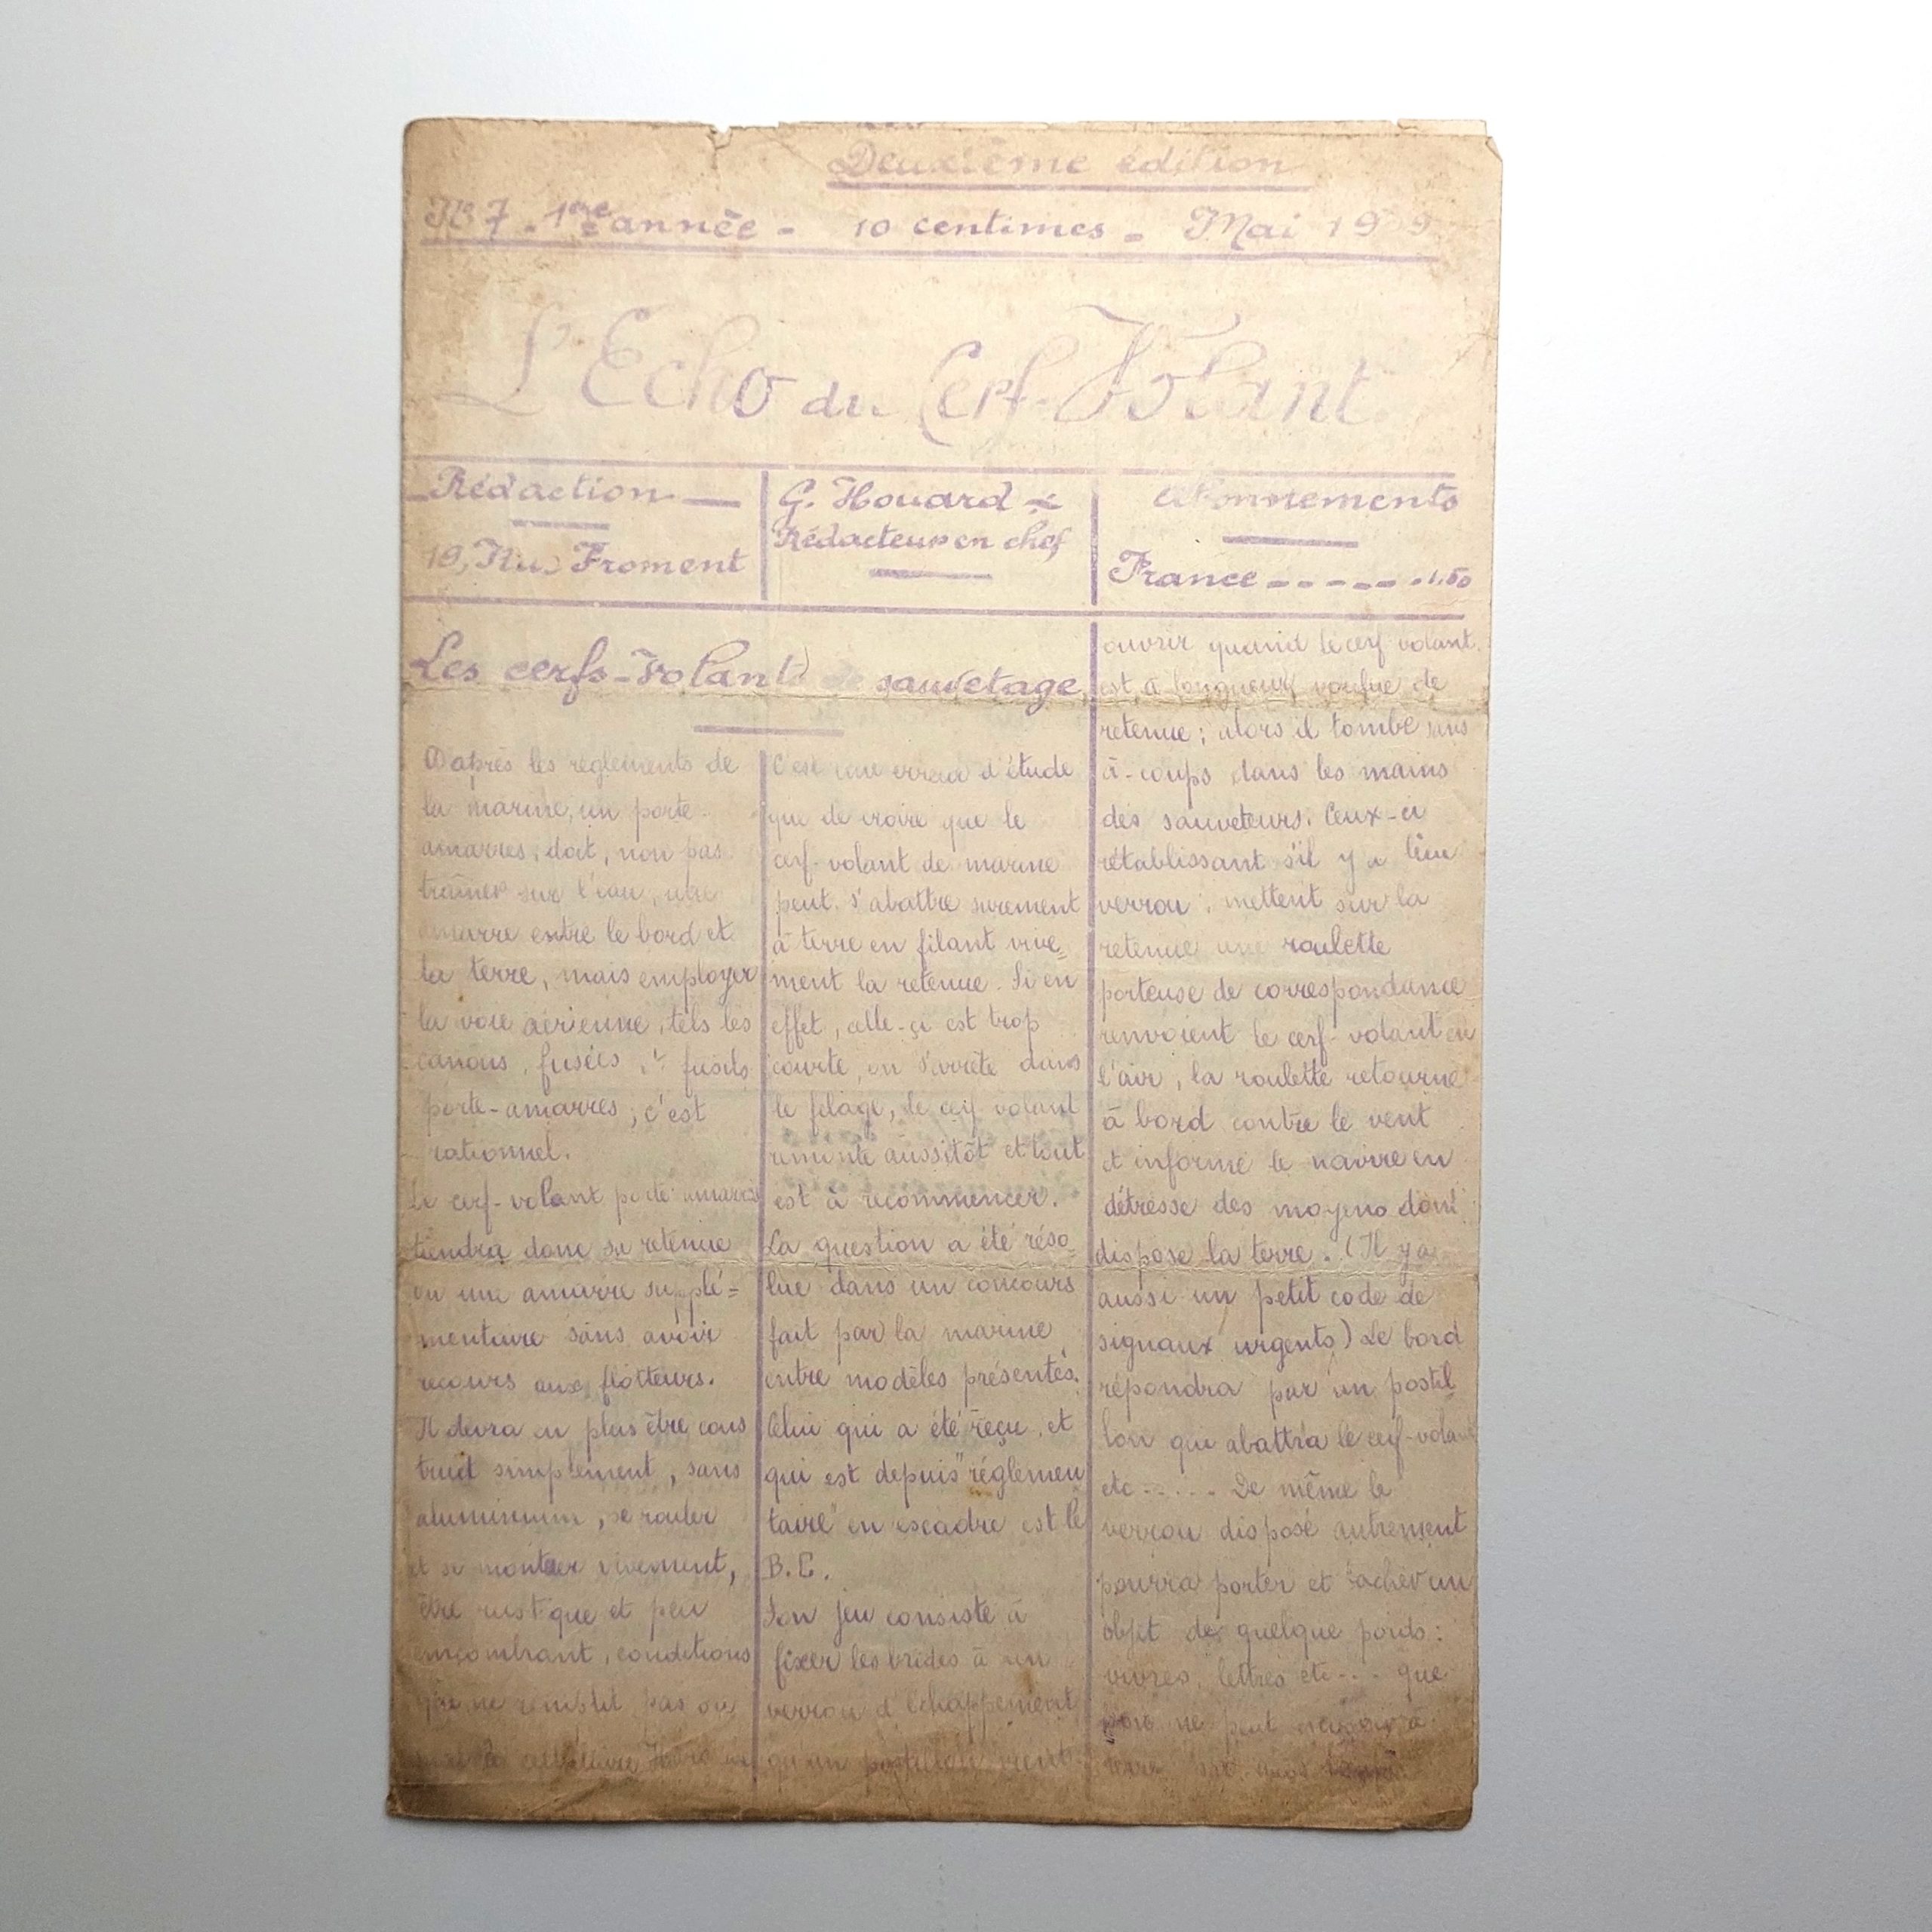 Deuxième édition
No 7 - 1ère année - 10 centimes - Mai 19 9
L'Echo du Cerf-Volant
Rédaction
19, Rue Froment
G. Houard
Rédacteur en chef
Abonnements
France - - - - - - 1.50
Les cerfs-volants sauvetage
D'après les règlements de
la marine, un porte-
amarres, doit, non pas
traîner sur l'eau, une
amarre entre le bord et
la terre, mais employer
la voie aérienne, tels les
canons, fusées, fusils
porte-amarres ; c'est
rationnel.
Le cerf-volant porte amarres
tiendra donc sa retenue
ou une amarre supplé=
mentaire sans avoir
recours aux flotteurs.
Il devra en plus être cons
truit simplement, sans
aluminium, se rouler
et se monter vivement,
être rustique et peu
encombrant, conditions
que ne remplit pas ou
cellulaire
C'est une erreur d'étude
que de croire que le
cerf-volant de marine
peut s'abattre surement
à terre en filant vive=
ment la retenue. Si en
effet, celle-çi est trop
courte, on s'arrête dans
le filage, le cerf volant
remonte aussitôt et tout
est à recommencer.
La question a été réso=
lue dans un concours
fait par la marine
entre modèles présentés.
Celui qui a été reçu, et
qui est depuis "réglemen
taire" en escadre est le
B.C.
Son jeu consiste à
fixer les brides à un
verrou d'échappement
qu'un postillon vient
ouvrir quand le cerf volant
est à longueur voulue de
retenue ; alors il tombe sans
à-coups dans les mains
des sauveteurs. Ceux-ci
rétablissant s'il y a lieu
verrou, mettent sur la
retenue une roulette
porteuse de correspondance
renvoient le cerf-volant en
l'air, la roulette retourne
à bord contre le vent
et informe le navire en
détresse des moyens dont
dispose la terre. (Il y a
aussi un petit code de
signaux urgents) Le bord
répondra par un postil
lon qui abattra le cerf-volant
etc ..... De même le
verrou disposé autrement
pourra porter et lacher un
objet de quelque poids :
vivres, lettres etc ... que
l'on ne peut envoyer à
terre par gros temps.